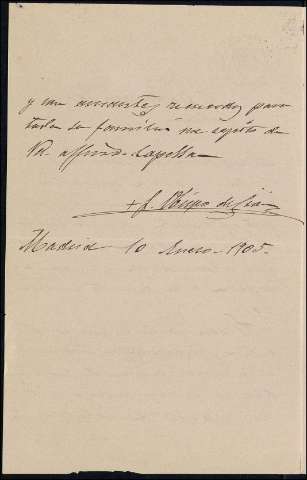 y con amantes recuerdos para
toda la familia me repito de
Vd. affmo. Capellan
+ J. Obispo de Sion
Madrid 10 Enero - 1905.